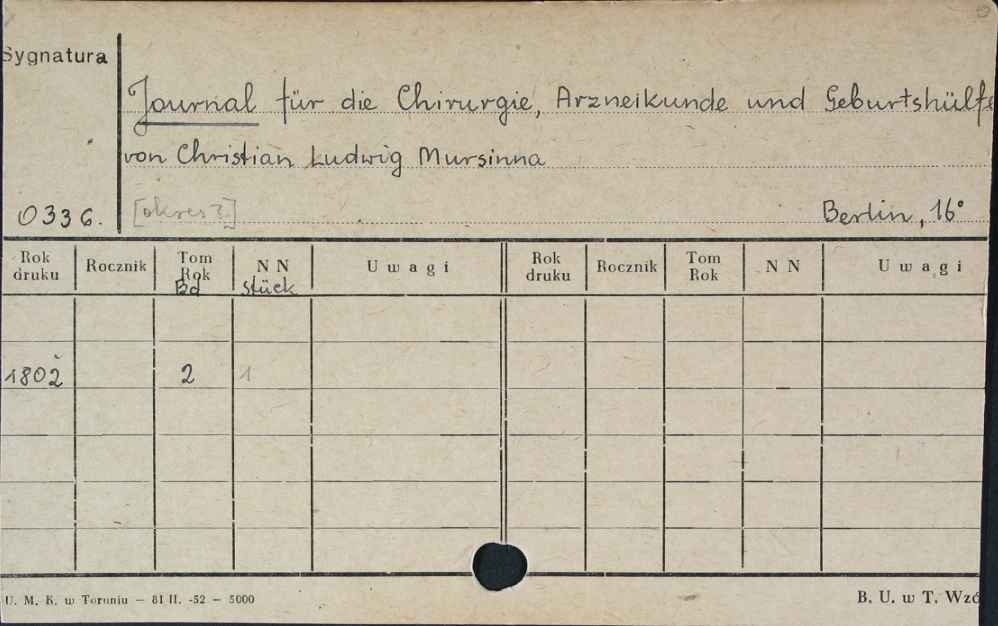 Sygnatura
Journal für die Chirurgie, Arzneikunde und Geburtshülfe
von Christian Ludwig Mursinna
0336. [okres?] Berlin, 16°
Rok druku Rocznik Tom Rok Bd NN Stück Uwagi Rok druku Rocznik Tom Rok NN Uwagi
1802 2 1
U. M. K. w Toruniu — 81 II. -52 — 5000 B. U. w T. Wzó